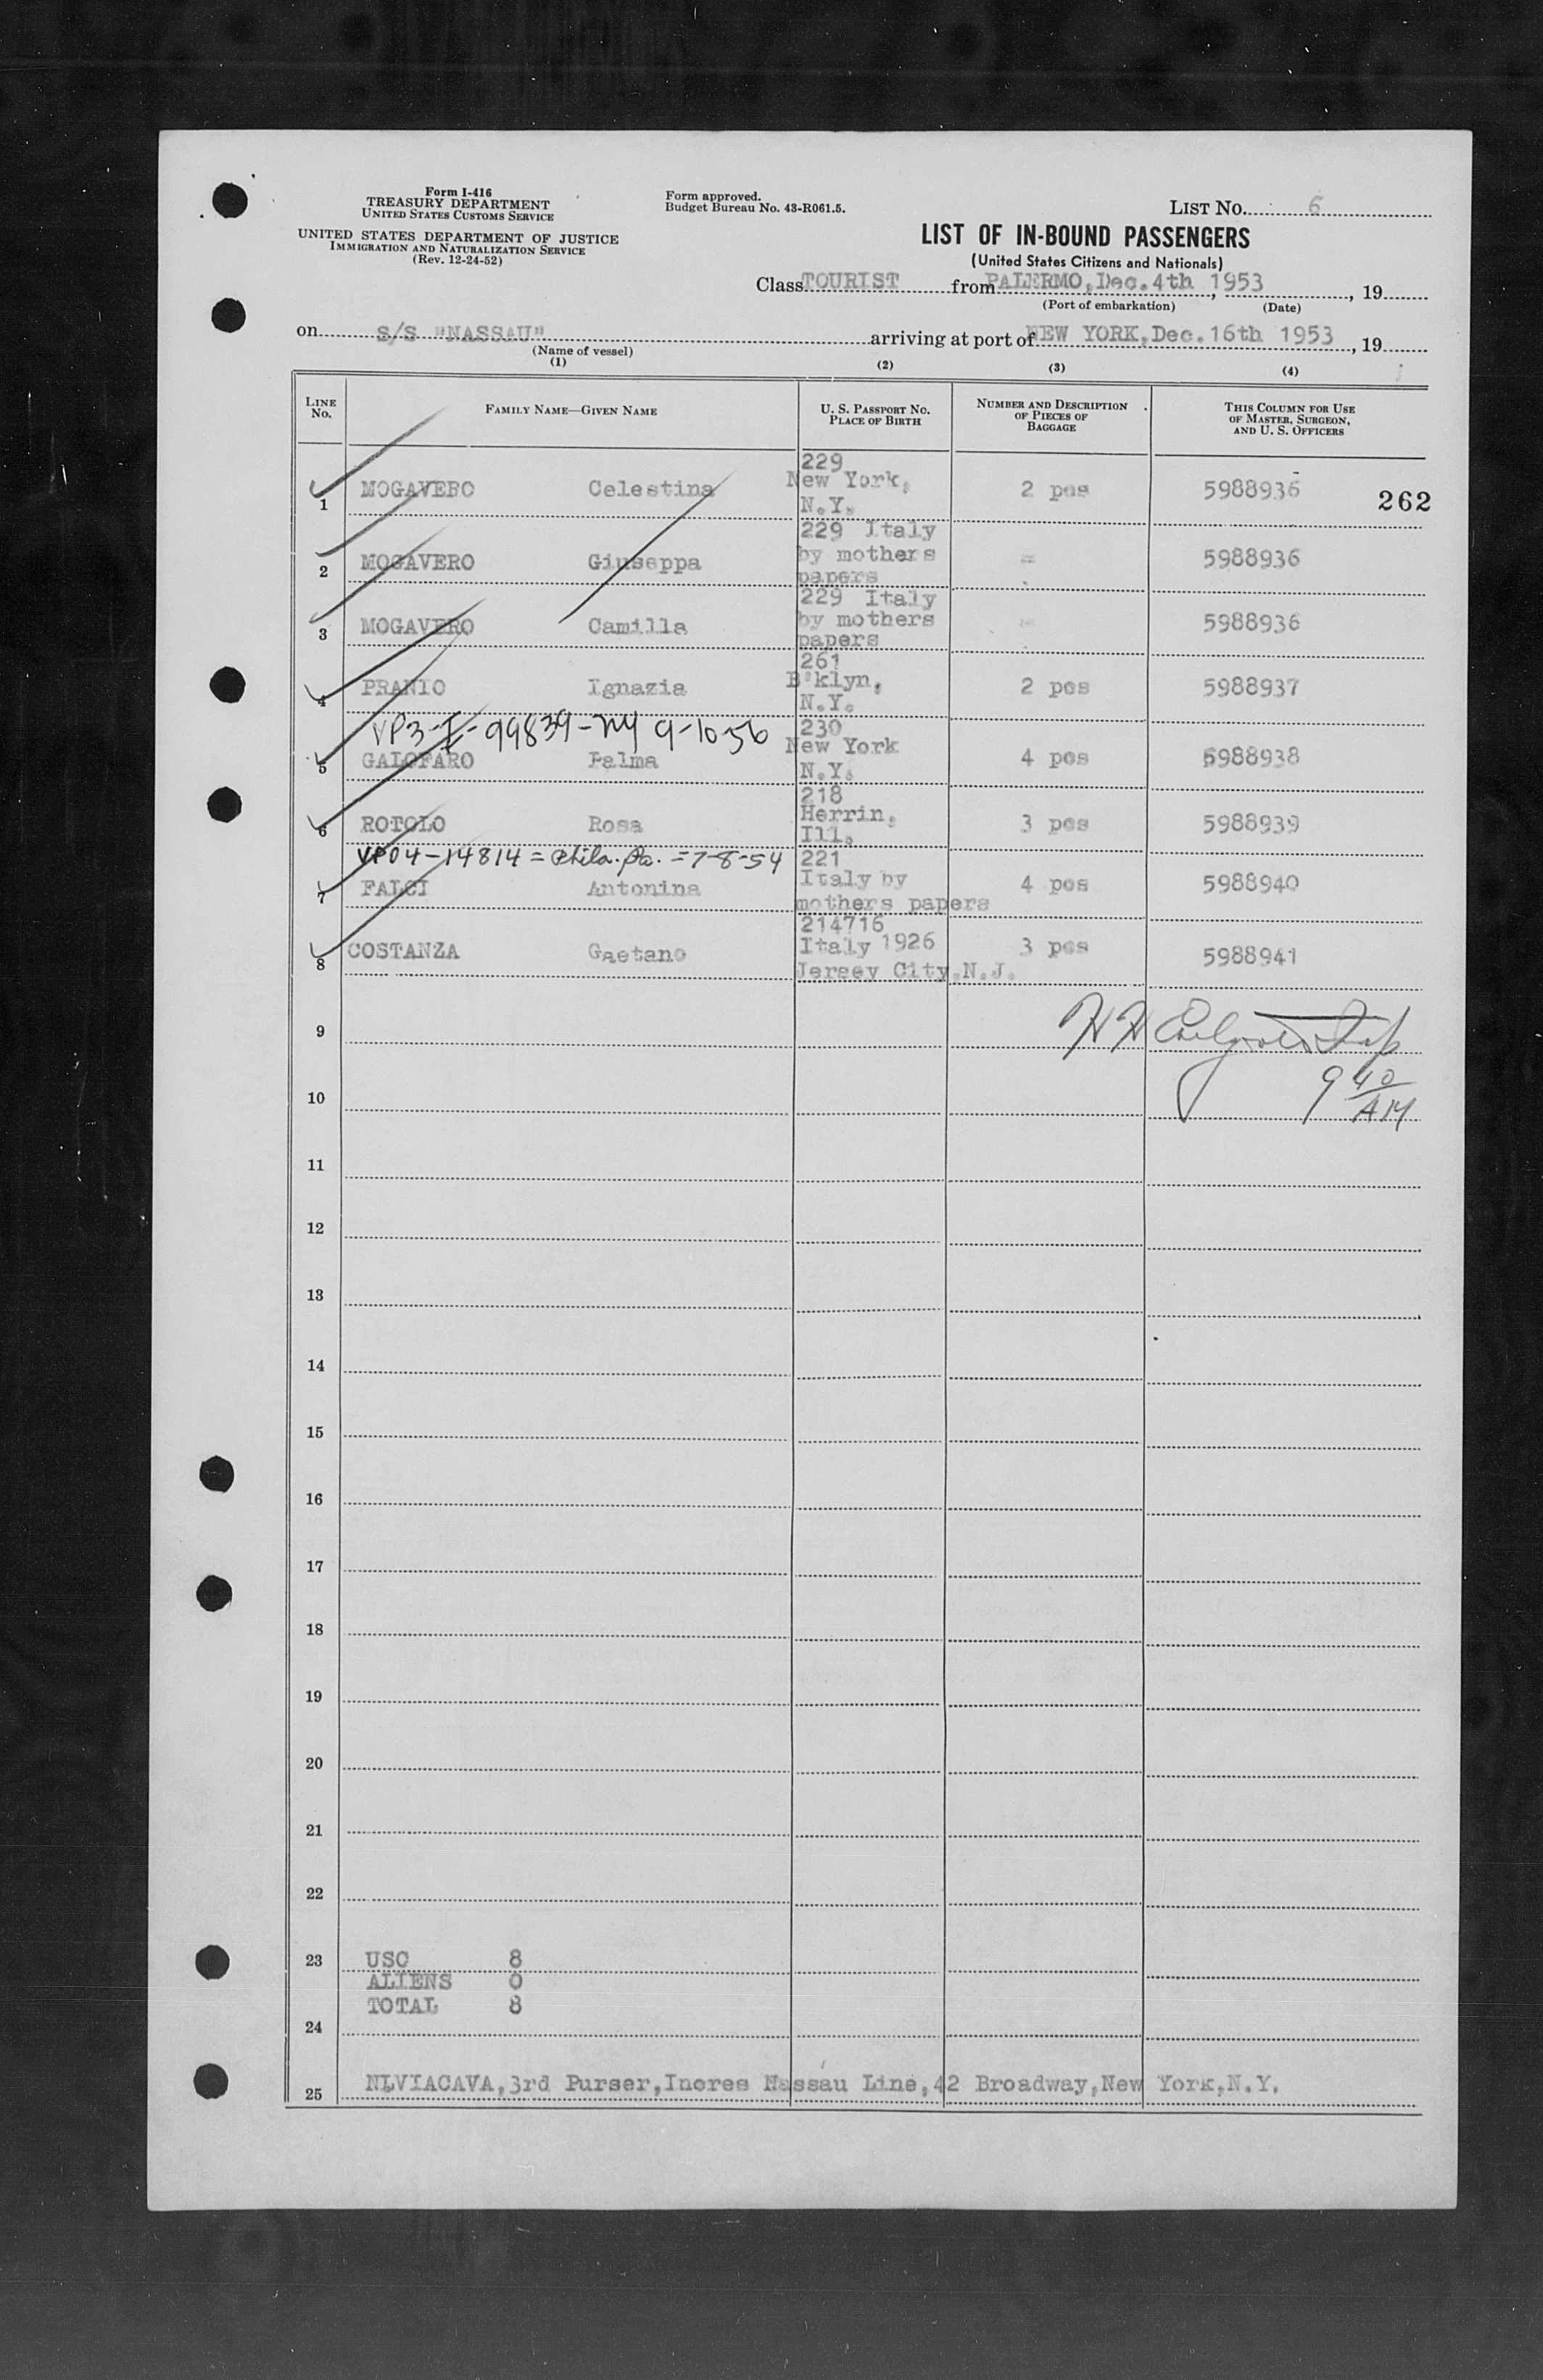 Form I-416
TREASURY DEPARTMENT
UNITED STATES CUSTOMS SERVICE
UNITED STATES DEPARTMENT OF JUSTICE
IMMIGRATION AND NATURALIZATION SERVICE
(Rev. 12-24-52)
Form approved.
Budget Bureau No. 43-R061.5.
LIST NO. 6
LIST OF IN-BOUND PASSENGERS
(United States Citizens and Nationals)
Class TOURIST from PALERMO, Dec. 4th, 1953, 19
(Port of embarkation) (Date)
on S/S "NASSAU" arriving at port of NEW YORK, Dec. 16th 1953, 19
(Name of vessel)
(1) (2) (3) (4)
LINE NO. FAMILY NAME—GIVEN NAME U. S. PASSPORT NO. PLACE OF BIRTH NUMBER AND DESCRIPTION OF PIECES OF BAGGAGE THIS COLUMN FOR USE OF MASTER, SURGEON, AND U. S. OFFICERS
229
1 MOGAVERO Celestina New York, 2 pcs 5988936 262
N.Y.
229 Italy
2 MOGAVERO Giuseppa by mothers = 5988936
papers
229 Italy
3 MOGAVERO Camilla by mothers = 5988936
papers
261
4 PRANIO Ignazia B'klyn, 2 pcs 5988937
N.Y.
VP3-I-99839-NY 9-10-56 230
5 GALOFARO Palma New York 4 pcs 5988938
N.Y.
218
6 ROTOLO Rosa Herrin, 3 pcs 5988939
Ill.
VP04-14814 = Phila. Pa. = 7-8-54 221
7 FALCI Antonina Italy by 4 pcs 5988940
mothers papers
214716
8 COSTANZA Gaetano Italy 1926 3 pcs 5988941
Jersey City, N.J.
9 H H
10 9 40 AM
11
12
13
14
15
16
17
18
19
20
21
22
23 USC 8
ALIENS 0
TOTAL 8
24
25 NLVIACAVA, 3rd Purser, Incres Nassau Line, 42 Broadway, New York, N.Y.